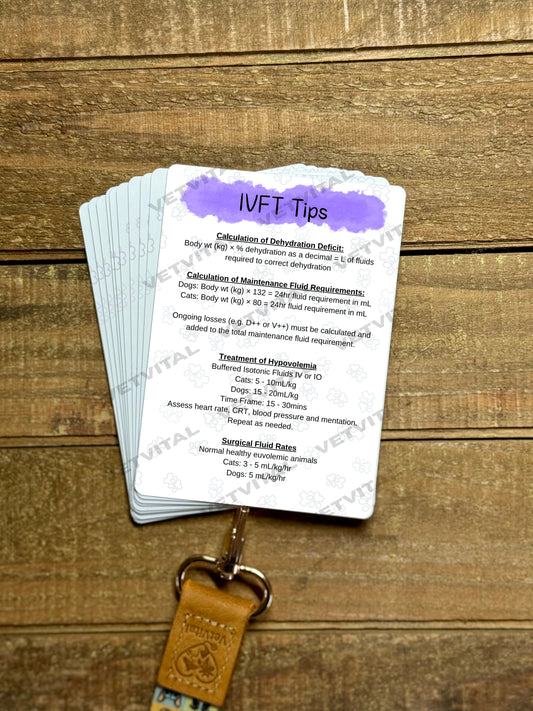 IVFT Tips
Calculation of Dehydration Deficit:
Body wt (kg) × % dehydration as a decimal = L of fluids
required to correct dehydration
Calculation of Maintenance Fluid Requirements:
Dogs: Body wt (kg) × 132 = 24hr fluid requirement in mL
Cats: Body wt (kg) × 80 = 24hr fluid requirement in mL
Ongoing losses (e.g. D++ or V++) must be calculated and
added to the total maintenance fluid requirement.
Treatment of Hypovolemia
Buffered Isotonic Fluids IV or IO
Cats: 5 - 10mL/kg
Dogs: 15 - 20mL/kg
Time Frame: 15 - 30mins
Assess heart rate, CRT, blood pressure and mentation.
Repeat as needed.
Surgical Fluid Rates
Normal healthy euvolemic animals
Cats: 3 - 5 mL/kg/hr
Dogs: 5 mL/kg/hr
VETVITAL
VETVITAL
VETVITAL
VETVITAL
VETVITAL
VETVITAL
VETVITAL
VETVITAL
VETVITAL
VetVital